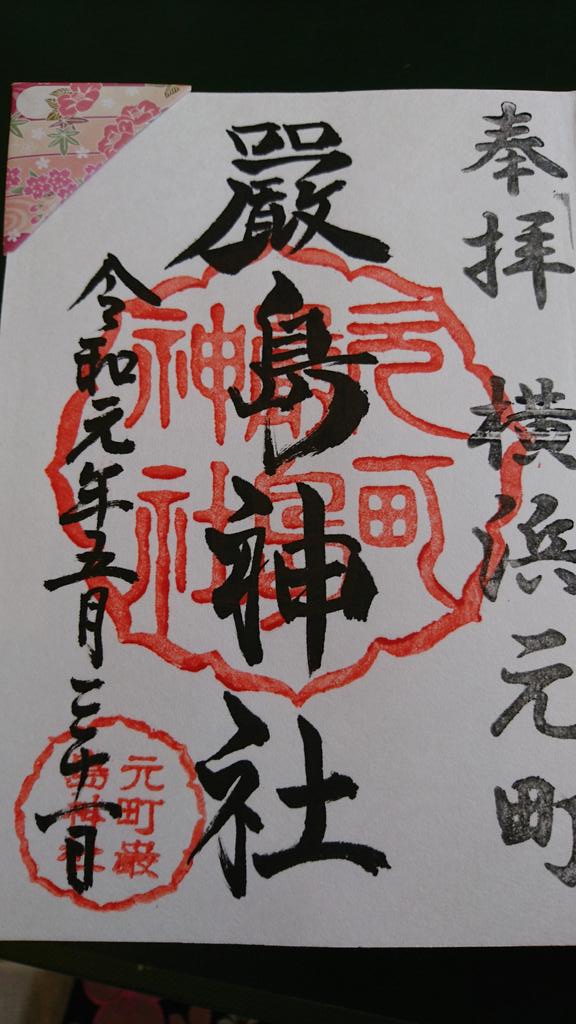 奉拝 横浜元町
嚴島神社
令和元年五月三十一日
元町
嚴島
神社
元町嚴
島神社